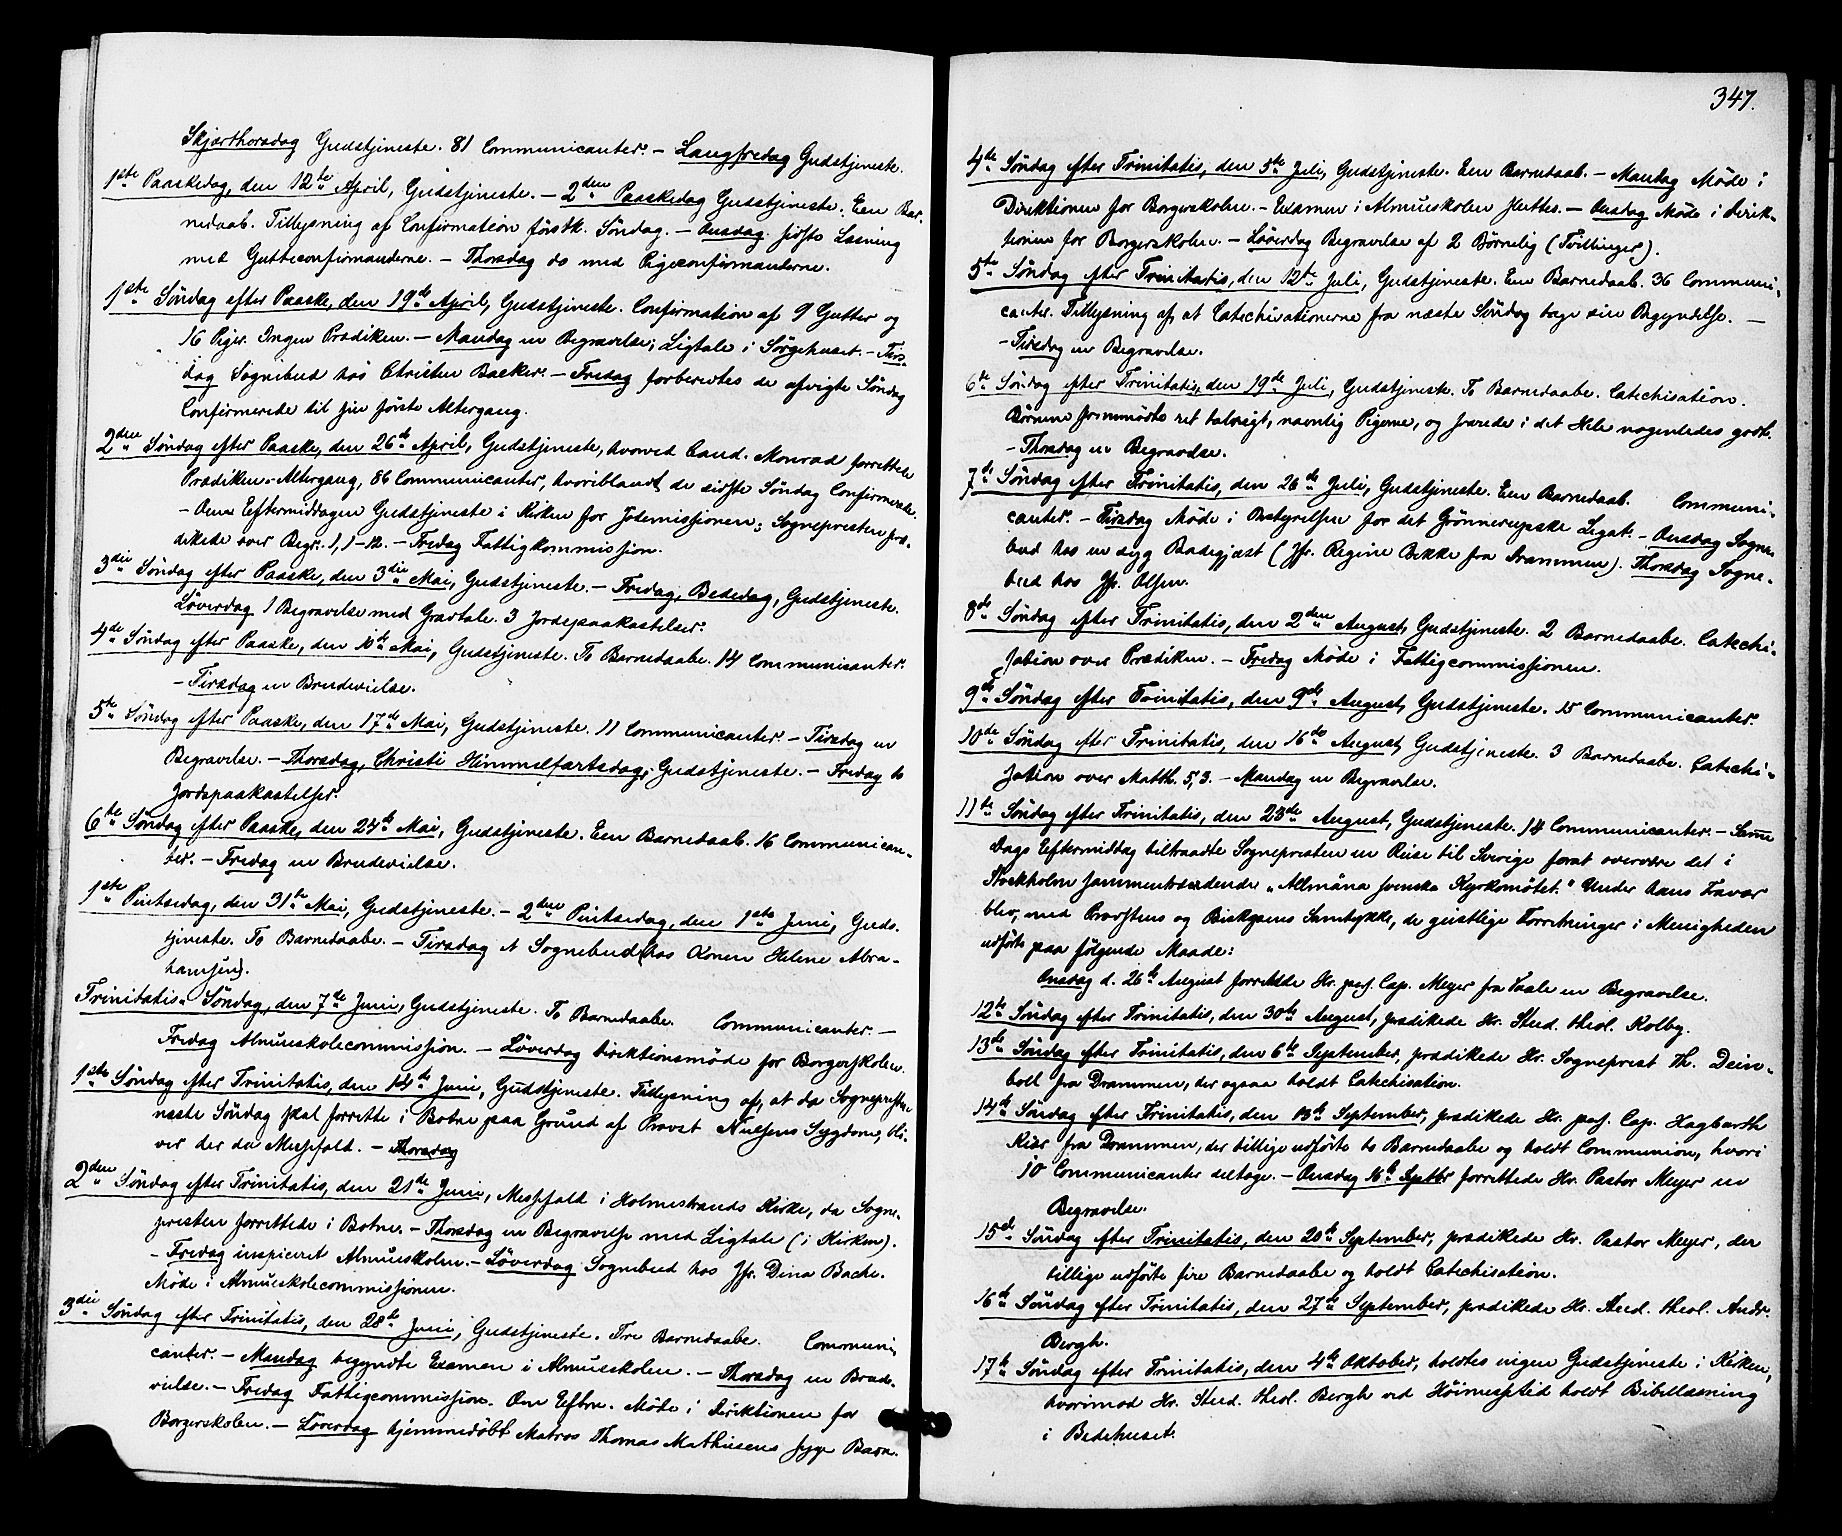 Skjærthorsdag Gudstjeneste. 81 Communicanter. – Langfredag Gudstjeneste.
1ste Paaskedag, den 12te April, Gudstjeneste. – 2den Paaskedag Gudstjeneste. Een Bar-
nedaab. Tillysning af Confirmation förstk. Söndag. – Onsdag sidste Læsning
med Gutteconfirmanderne. – Thorsdag do med Pigeconfirmanderne.
1ste Söndag efter Paaske, den 19de April, Gudstjeneste. Confirmation af 9 Gutter og
16 Piger. Ingen Prædiken. – Mandag en Begravelse; Ligtale i Sörgehuset. – Tirs-
dag Sognebud hos Christen Backer. – Fredag forberedtes de afvigte Söndag
Confirmerede til sin förste Altergang.
2den Söndag efter Paaske, den 26de April, Gudstjeneste, hvorved Cand. Monrad forrettede
Prædiken. Altergang, 86 Communicanter, hvoriblandt de sidste Söndag Confirmerede.
– Om Eftermiddagen Gudstjeneste i Kirken for Jödemissionen; Sognepresten præ-
dikede over Begr. 1, 1-12. – Fredag Fattigkommission.
3die Söndag efter Paaske, den 3die Mai, Gudstjeneste. – Fredag, Bededag, Gudstjeneste.
Löverdag 1 Begravelse med Gravtale. 3 Jordspaakastelser.
4de Söndag efter Paaske, den 10de Mai, Gudstjeneste. To Barnedaabe. 14 Communicanter.
– Tirsdag en Brudevielse.
5te Söndag efter Paaske, den 17de Mai, Gudstjeneste. 11 Communicanter. – Tirsdag en
Begravelse. – Thorsdag, Christi Himmelfartsdag, Gudstjeneste. – Fredag to
Jordspaakastelser.
6te Söndag efter Paaske, den 24de Mai, Gudstjeneste. Een Barnedaab. 16 Communican-
ter. – Fredag en Brudevielse.
1ste Pintsedag, den 31te Mai, Gudstjeneste. – 2den Pintsedag, den 1ste Juni, Guds-
tjeneste. To Barnedaabe. – Tirsdag et Sognebud (hos Konen Helene Abra-
hamsen).
Trinitatis Söndag, den 7de Juni, Gudstjeneste. To Barnedaabe. Communicanter. –
Fredag Almueskolecommission. – Löverdag Direktionsmöde for Borgerskolen.
1ste Söndag efter Trinitatis, den 14de Juni, Gudstjeneste. Tillysning af, at da Sognepresten
næste Söndag skal forrette i Botne paa Grund af Provst Nielsens Sygdom, bli-
ver der da Messefald. – Thorsdag
2den Söndag efter Trinitatis, den 21de Juni, Messefald i Holmestrands Kirke, da Sogne-
presten forrettede i Botne. – Thorsdag en Begravelse med Ligtale (i Kirken).
– Fredag inspiceret Almueskolen. – Löverdag Sognebud hos Jfr. Dina Bache.
Möde i Almueskolecommissionen.
3die Söndag efter Trinitatis, den 28de Juni, Gudstjeneste. Tre Barnedaabe. Communi-
canter. – Mandag begyndte Examen i Almueskolen. – Thorsdag en Brude-
vielse. – Fredag Fattigcommission. Om Efterm. Möde i Direktionen for
Borgerskolen. – Löverdag hjemmedöbt Matros Thomas Mathisens syge Barn.
347.
4de Söndag efter Trinitatis, den 5te Juli, Gudstjeneste. Een Barnedaab. – Mandag Möde i
Direktionen for Borgerskolen. – Examen i Almueskolen sluttes. – Onsdag Möde i Direk-
tionen for Borgerskolen. – Löverdag Begravelse af 2 Börnelig (Tvillinger).
5te Söndag efter Trinitatis, den 12te Juli, Gudstjeneste. Een Barnedaab. 36 Communi-
canter. Tillysning af, at Catechisationerne fra næste Söndag tage sin Begyndelse. –
– Tirsdag en Begravelse.
6te Söndag efter Trinitatis, den 19de Juli, Gudstjeneste. To Barnedaabe. Catechisation.
Börnene fremmödte ret talrigt, navnlig Pigerne, og svarede i det Hele nogenledes godt.
– Thorsdag en Begravelse.
7de Söndag efter Trinitatis, den 26de Juli, Gudstjeneste. Een Barnedaab. Communi-
canter. – Tirsdag Möde i Bestyrelsen for det Grönnerupske Legat. – Onsdag Sogne-
bud hos en syg Badegjæst (Jfr. Regine Bekke fra Drammen). Thorsdag Sogne-
bud hos Jfr. Olsen.
8de Söndag efter Trinitatis, den 2den August, Gudstjeneste. 2 Barnedaabe. Catechi-
sation over Prædiken. – Fredag Möde i Fattigcommissionen.
9de Söndag efter Trinitatis, den 9de August, Gudstjeneste. 15 Communicanter.
10de Söndag efter Trinitatis, den 16de August, Gudstjeneste. 3 Barnedaabe. Catechi-
sation over Matth. 5, 3. – Mandag en Begravelse.
11te Söndag efter Trinitatis, den 23de August, Gudstjeneste. 14 Communicanter. – Samme
Dags Eftermiddag tiltraadte Sognepresten en Reise til Sverige forat overvære det i
Stockholm sammentrædende „Allmäna svenska Kyrkomötet." Under hans Fravær
blev, med Provstens og Biskopens Samtykke, de geistlige Forretninger i Menigheden
udförte paa fölgende Maade:
Onsdag d. 26de August forrettede Hr. pers. Cap. Meyer fra Vaale en Begravelse.
12te Söndag efter Trinitatis, den 30te August, prædikede Hr. Stud. theol. Kolby.
13de Söndag efter Trinitatis, den 6te September, prædikede Hr. Sogneprest Th. Dein-
boll fra Drammen, der ogsaa holdt Catechisation.
14de Söndag efter Trinitatis, den 13de September, prædikede Hr. pers. Cap. Hagbarth
Kiær fra Drammen, der tillige udförte to Barnedaabe og holdt Communion, hvori
10 Communicanter deltoge. – Onsdag 16de Septbr forrettede Hr. Pastor Meyer en
Begravelse.
15de Söndag efter Trinitatis, den 20de September, prædikede Hr. Pastor Meyer, der
tillige udförte fire Barnedaabe og holdt Catechisation.
16de Söndag efter Trinitatis, den 27de September, prædikede Hr. Stud. theol. Andr.
Bergh.
17de Söndag efter Trinitatis, den 4de Oktober, holdtes ingen Gudstjeneste i Kirken,
hvorimod Hr. Stud. theol. Bergh ved Höimessetid holdt Bibellæsning
i Bedehuset.